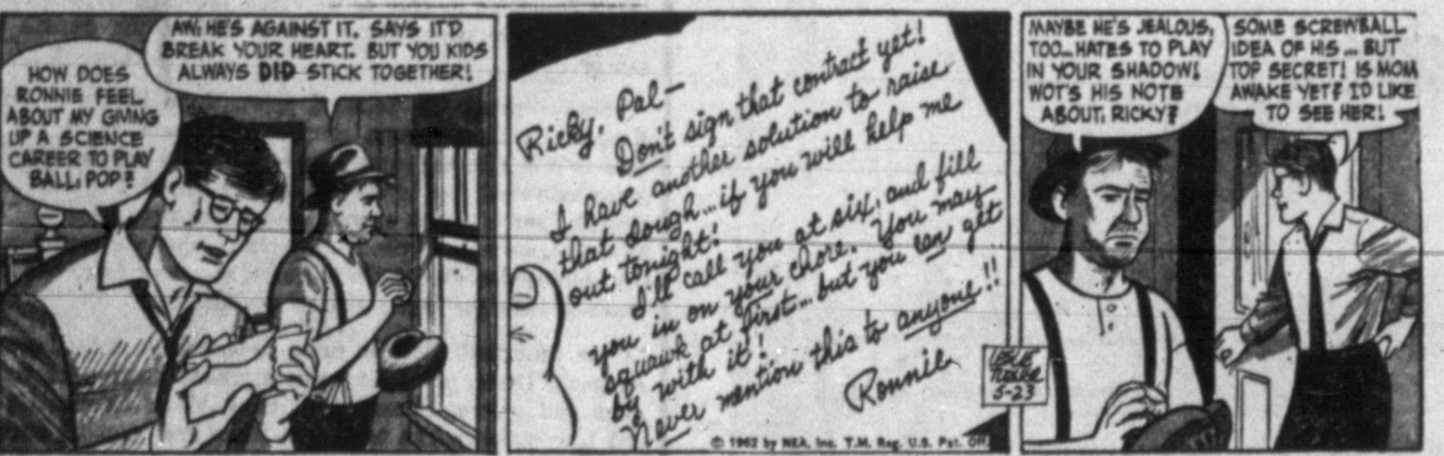 HOW DOES
RONNIE FEEL
ABOUT MY GIVING
UP A SCIENCE
CAREER TO PLAY
BALL, POP?
AW, HE'S AGAINST IT. SAYS IT'D
BREAK YOUR HEART. BUT YOU KIDS
ALWAYS DID STICK TOGETHER!
Ricky, Pal—
Don't sign that contract yet!
I have another solution to raise
that dough... if you will help me
out tonight!
I'll call you at six, and fill
you in on your chore. You may
squawk at first... but you can get
by with it!
Never mention this to anyone!!
Ronnie
© 1962 by NEA, Inc. T.M. Reg. U.S. Pat. Off.
LESLIE
TURNER
5-23
MAYBE HE'S JEALOUS,
TOO... HATES TO PLAY
IN YOUR SHADOW!
WOT'S HIS NOTE
ABOUT, RICKY?
SOME SCREWBALL
IDEA OF HIS... BUT
TOP SECRET! IS MOM
AWAKE YET? I'D LIKE
TO SEE HER!